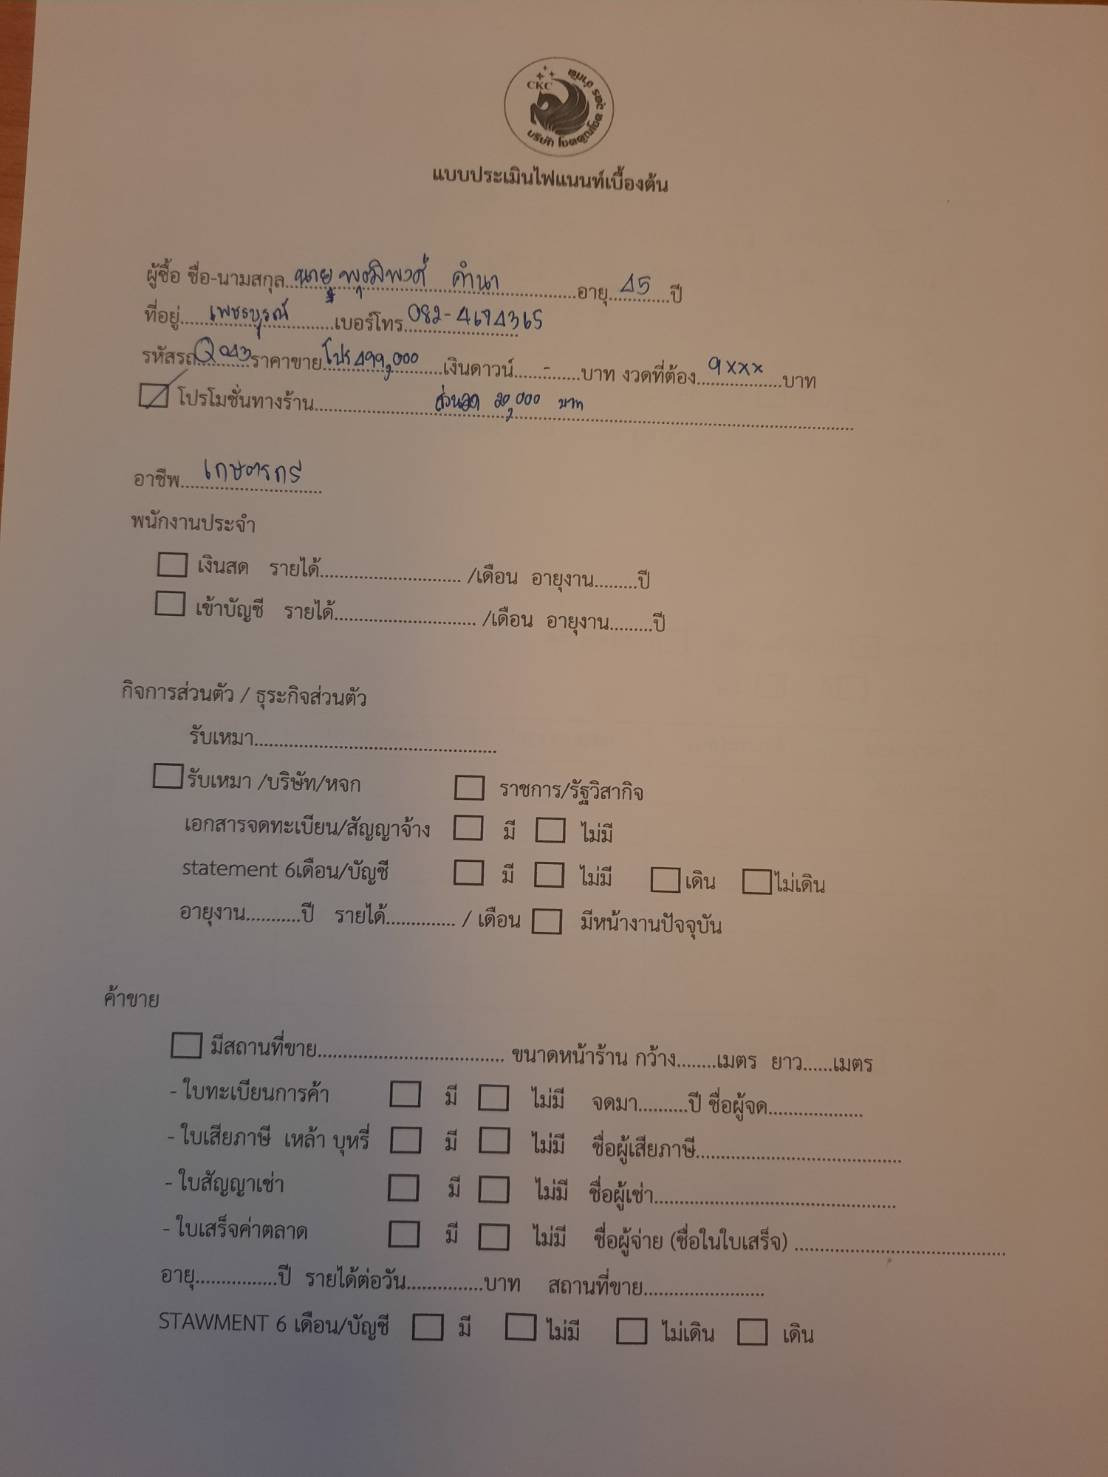 CKC
แบบประเมินไฟแนนท์เบื้องต้น
ผู้ซื้อ ชื่อ-นามสกุล...นาย พุฒิพงศ์ คำนา...อายุ...45...ปี
ที่อยู่...เพชรบูรณ์...เบอร์โทร...082-4694365
รหัสรถ...Q043...ราคาขาย...โปร 499,000...เงินดาวน์...-...บาท งวดที่ต้อง...9xxx...บาท
โปรโมชั่นทางร้าน...ส่วนลด 20,000 บาท
อาชีพ...เกษตรกร
พนักงานประจำ
เงินสด รายได้.........................../เดือน อายุงาน.........ปี
เข้าบัญชี รายได้.........................../เดือน อายุงาน.........ปี
กิจการส่วนตัว / ธุระกิจส่วนตัว
รับเหมา...............................................
รับเหมา /บริษัท/หจก ราชการ/รัฐวิสากิจ
เอกสารจดทะเบียน/สัญญาจ้าง มี ไม่มี
statement 6เดือน/บัญชี มี ไม่มี เดิน ไม่เดิน
อายุงาน...........ปี รายได้............. / เดือน มีหน้างานปัจจุบัน
ค้าขาย
มีสถานที่ขาย.................................... ขนาดหน้าร้าน กว้าง........เมตร ยาว......เมตร
- ใบทะเบียนการค้า มี ไม่มี จดมา..........ปี ชื่อผู้จด..................
- ใบเสียภาษี เหล้า บุหรี่ มี ไม่มี ชื่อผู้เสียภาษี........................................
- ใบสัญญาเช่า มี ไม่มี ชื่อผู้เช่า...............................................
- ใบเสร็จค่าตลาด มี ไม่มี ชื่อผู้จ่าย (ชื่อในใบเสร็จ) .........................................
อายุ................ปี รายได้ต่อวัน...............บาท สถานที่ขาย.......................
STAWMENT 6 เดือน/บัญชี มี ไม่มี ไม่เดิน เดิน